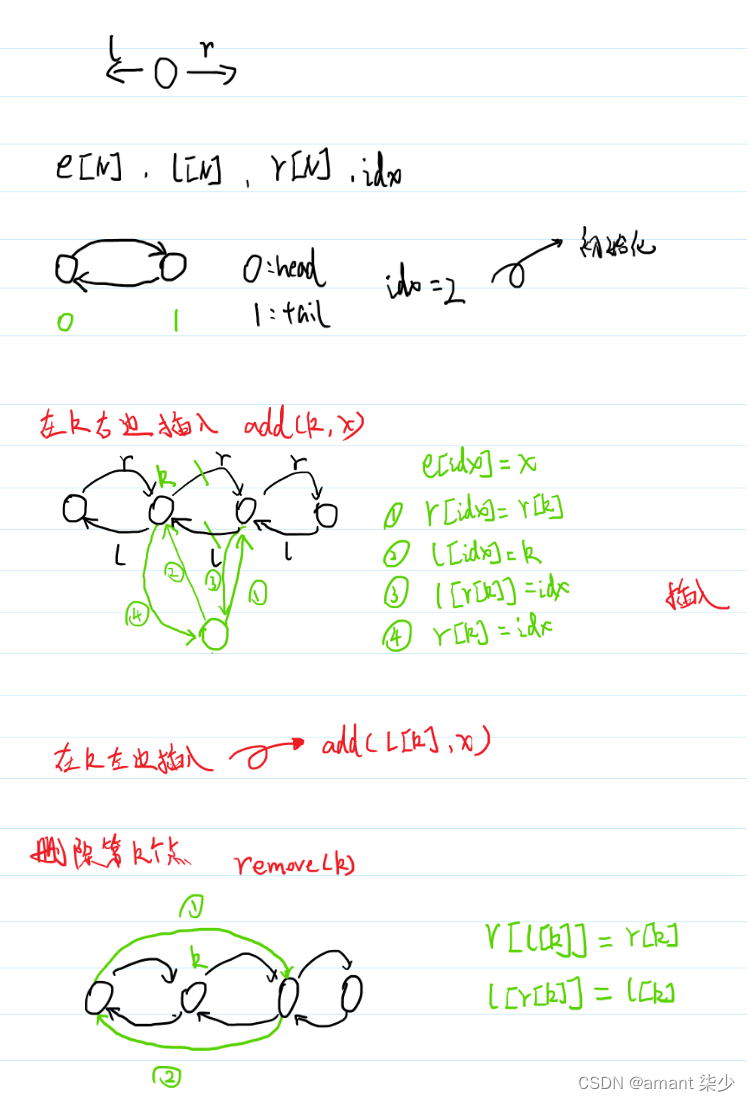 l r
e[N] , l[N] , r[N] , idx
初始化
0:head idx=2
1:tail
0 1
在k右边插入 add(k,x)
r r r
k
e[idx]=x
① r[idx]=r[k]
l l l
② l[idx]=k
② ③ ①
③ l[r[k]]=idx
插入
④
④ r[k]=idx
在k左边插入 add(l[k],x)
删除第k个点 remove(k)
①
k
r[l[k]]=r[k]
l[r[k]]=l[k]
②
CSDN @amant 柒少